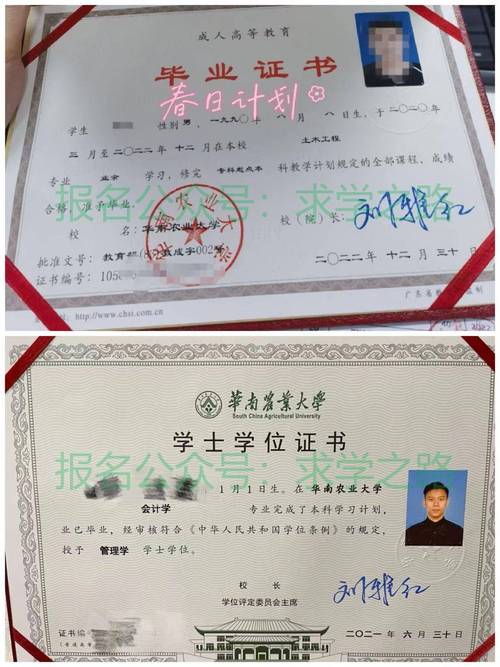 成人高等教育
毕业证书
春日计划
学生 性别 男，一九九〇年 八月 八日生，于二〇二〇年
三月至二〇二二年十二月在本校 土木工程
专业 业余 学习，修完 专科起点本 科教学计划规定的全部课程，成绩
合格，准予毕业。
报名公众号：求学之路
校 名：华南农业大学 校（院）长：
批准文号：教育部(87)教成字002号
证书编号：105
二〇二二年 十二月 三十日
http://www.chsi.com.cn
广东省
华南农业大学
South China Agricultural University
学士学位证书
报名公众号：求学之路
1月1日生。在 华南农业大学
会计学 专业完成了本科学习计划，
业已毕业，经审核符合《中华人民共和国学位条例》的规定，
授予 管理学 学士学位。
校 长
学位评定委员会主席
证书编
二〇二一年 六月 三十日